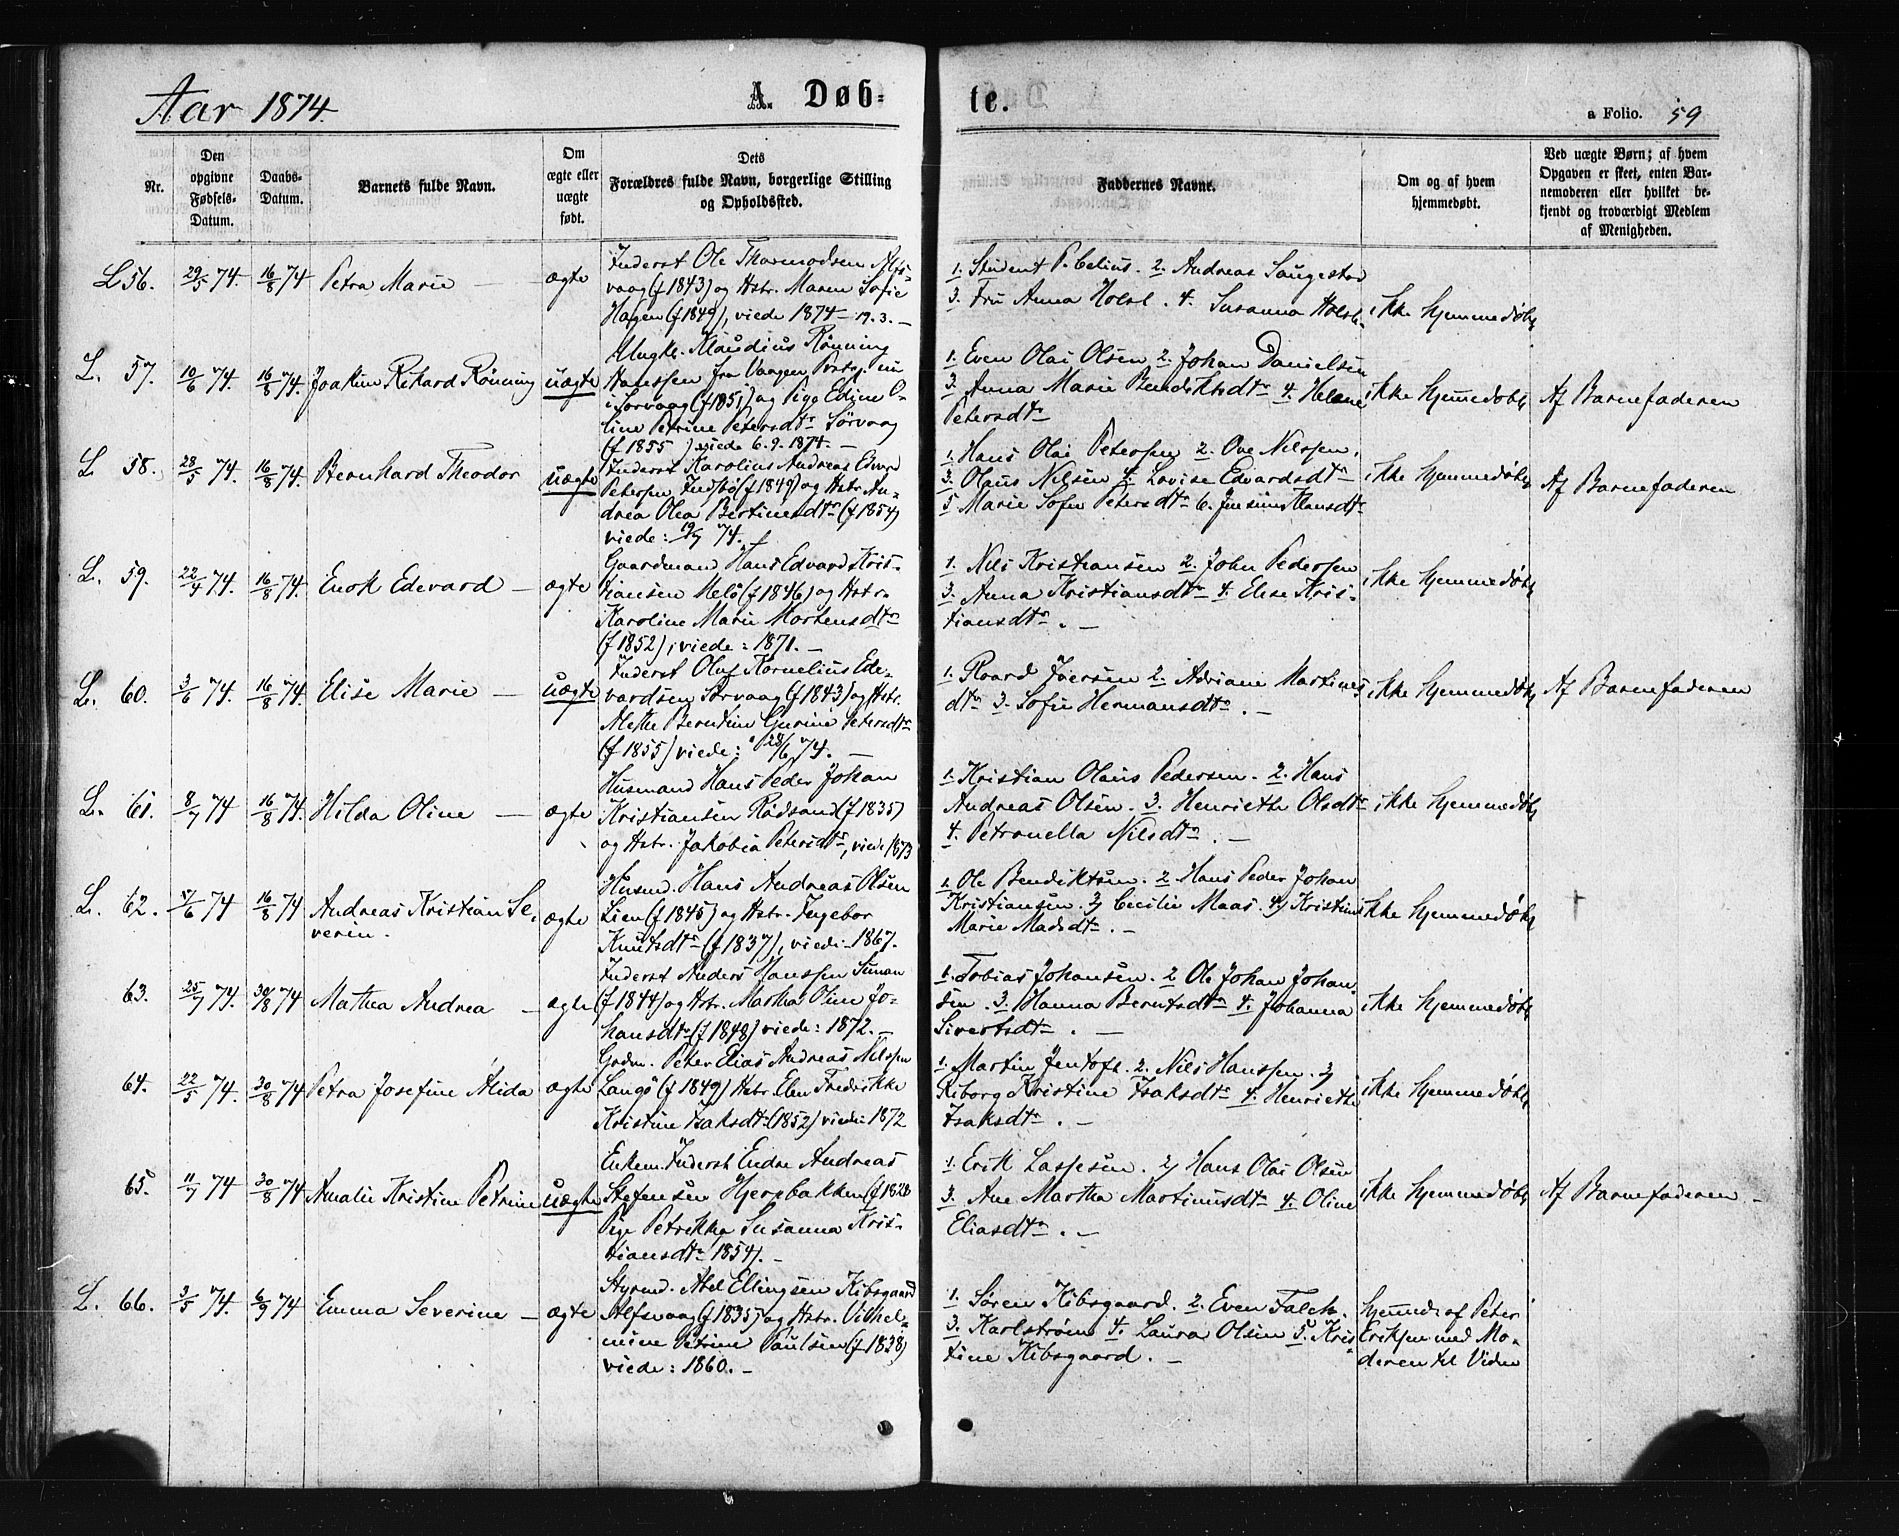 Aar 1874.
A. Døb-
te.
a Folio. 59
Nr.
Den opgivne Fødsels-Datum.
Daabs-Datum.
Barnets fulde Navn.
Om ægte eller uægte født.
Dets Forældres fulde Navn, borgerlige Stilling og Opholdssted.
Faddernes Navne.
Om og af hvem hjemmedøbt.
Ved uægte Børn; af hvem Opgaven er skeet, enten Barnemoderen eller hvilket bekjendt og troværdigt Medlem af Menigheden.
L 56. 29/5 74. 16/8 74 Petra Marie — ægte
Inderst Ole Thormodsen Alfs-
vaag (f 1843) og Hstr. Maren Sofie
Hagen (f 1849), viede 1874 – 19.3. —
1. Student P. Celius. 2. Andreas Saugestad
3. Fru Anna Holst. 4. Susanna Holst.
ikke hjemmedøbt
L. 57. 10/6 74. 16/8 74. Joakim Rikard Rönning uægte
Ungk. Klaudius Rönning
Hanssen fra Vaagen Prstgj. nu
i Sörvaag (f 1851) og Pige Edine O-
line Petrine Petersdtr Sörvaag
(f 1855) viede 6.9.1874. —
1. Even Olai Olsen 2. Johan Danielsen
3. Anna Marie Bendiktsdtr 4. Helene
Petersdtr
ikke hjemmedøbt
Af Barnefaderen
L 58. 28/5 74. 16/8 74. Bernhard Theodor uægte
Inderst Karolius Andreas Edvard
Petersen Indsbö (f 1849) og Hstr. An-
drea Olea Bertinesdtr (f 1854)
viede: 19/7 74.
1. Hans Olai Petersen 2. Ove Nilssen.
3. Olaus Nilsen 4. Lovise Edvardsdtr
5 Marie Sofie Petersdtr 6. Jensine Hansdtr
ikke hjemmedøbt
Af Barnefaderen
L. 59. 22/4 74. 16/8 74. Enok Edevard — ægte
Gaardmand Hans Edvard Kris-
tiansen Melö (f 1846) og Hstr.
Karoline Marie Mortensdtr
(f 1852), viede: 1871. —
1. Nils Kristiansen 2. John Pedersen
3. Anna Kristiansdtr 4. Elise Kris-
tiansdtr. —
ikke hjemmedøbt
L. 60. 3/6 74. 16/8 74. Elise Marie — uægte
Inderst Oluf Kornelius Ede-
vardsen Sörvaag (f 1843) og Hstr.
Mette Berntine Gurine Petersdtr
(f 1855) viede: 28/6 74. —
1. Roard Iversen 2. Adriane Martines
dtr 3. Sofie Hermansdtr. —
ikke hjemmedøbt
Af Barnefaderen
L. 61. 8/7 74 16/8 74. Hilda Oline — ægte
Husmand Hans Peder Johan
Kristiansen Rödsand (f 1835)
og Hstr. Jakobia Petersdtr, viede 1873
1. Kristian Olaus Pedersen. 2. Hans
Andreas Olsen. 3. Henriette Olsdtr
4. Petronella Nilsdtr. —
ikke hjemmedøbt
L. 62. 5/6 74 16/8 74 Andreas Kristian Se-
verin. ægte
Husmd. Hans Andreas Olsen
Lien (f 1845) og Hstr. Ingebor
Knutsdtr (f 1837), viede 1867.
1. Ole Bendiktsen. 2 Hans Peder Johan
Kristiansen. 3) Cecilie Maas. 4) Kristine
Marie Madsdtr. —
ikke hjemmedøbt
63. 25/7 74. 30/8 74 Mathea Andrea — ægte
Inderst Anders Hanssen Sunan
(f 1844) og Hstr. Martha Oline Jo-
hansdtr (f 1848) viede: 1872. —
1. Tobias Johansen. 2 Ole Johan Johan-
sen. 3. Hanna Berntsdtr 4. Johanna
Sivertsdtr. —
ikke hjemmedøbt
64. 22/5 74. 30/8 74 Petra Josefine Alida ægte
Grdm. Peter Elias Andreas Nilssen
Langö (f 1849) Hstr. Elen Fredrikke
Kristine Isaksdtr (1852) viede 1872
1. Martin Jentoft. 2. Nils Hanssen. 3)
Kiborg Kristine Isaksdtr 4. Henriette
Isaksdtr. —
ikke hjemmedøbt
65. 11/7 74 30/8 74 Amalie Kristine Petrine uægte
Enkem. Inderst Endre Andreas
Stefensen Hjerpbakken (f 1828
Pige Petrikka Susanna Kris-
tiansdtr 1854). —
1. Erik Lassesen. 2) Hans Olai Olsen
3. Ane Martha Martinusdtr 4. Oline
Eliasdtr. —
ikke hjemmedøbt
Af Barnefaderen —
L. 66. 3/5 74. 6/9 74 Emma Severine — ægte
Styrmd. Abel Ellingsen Kibsgaard
Alfsvaag (f 1835) og Hstr. Vilhel-
mine Petrine Paulsen (f 1838)
viede: 1860. —
1. Sören Kibsgaard. 2. Even Falch.
3. Karlström 4. Laura Olsen 5. Kris-
tine Kibsgaard. —
hjemmed. af Peter
Eriksen med Mo-
deren til Vidne